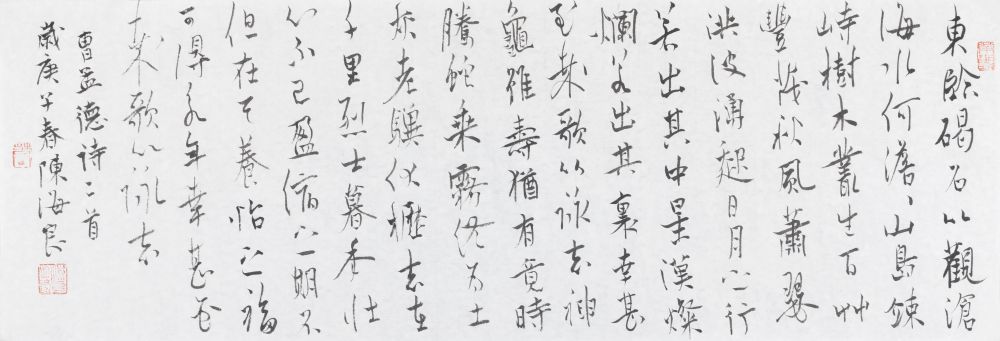 東臨碣石以觀滄
海水何澹澹山島竦
峙樹木叢生百艸
豐茂秋風蕭瑟
洪波湧起日月之行
若出其中星漢燦
爛若出其裏幸甚
至哉歌以詠志神
龜雖壽猶有竟時
騰蛇乘霧終為土
灰老驥伏櫪志在
千里烈士暮年壯
心不已盈縮之期不
但在天養怡之福
可得永年幸甚至
哉歌以詠志
曹孟德詩二首
歲庚子春陳海良